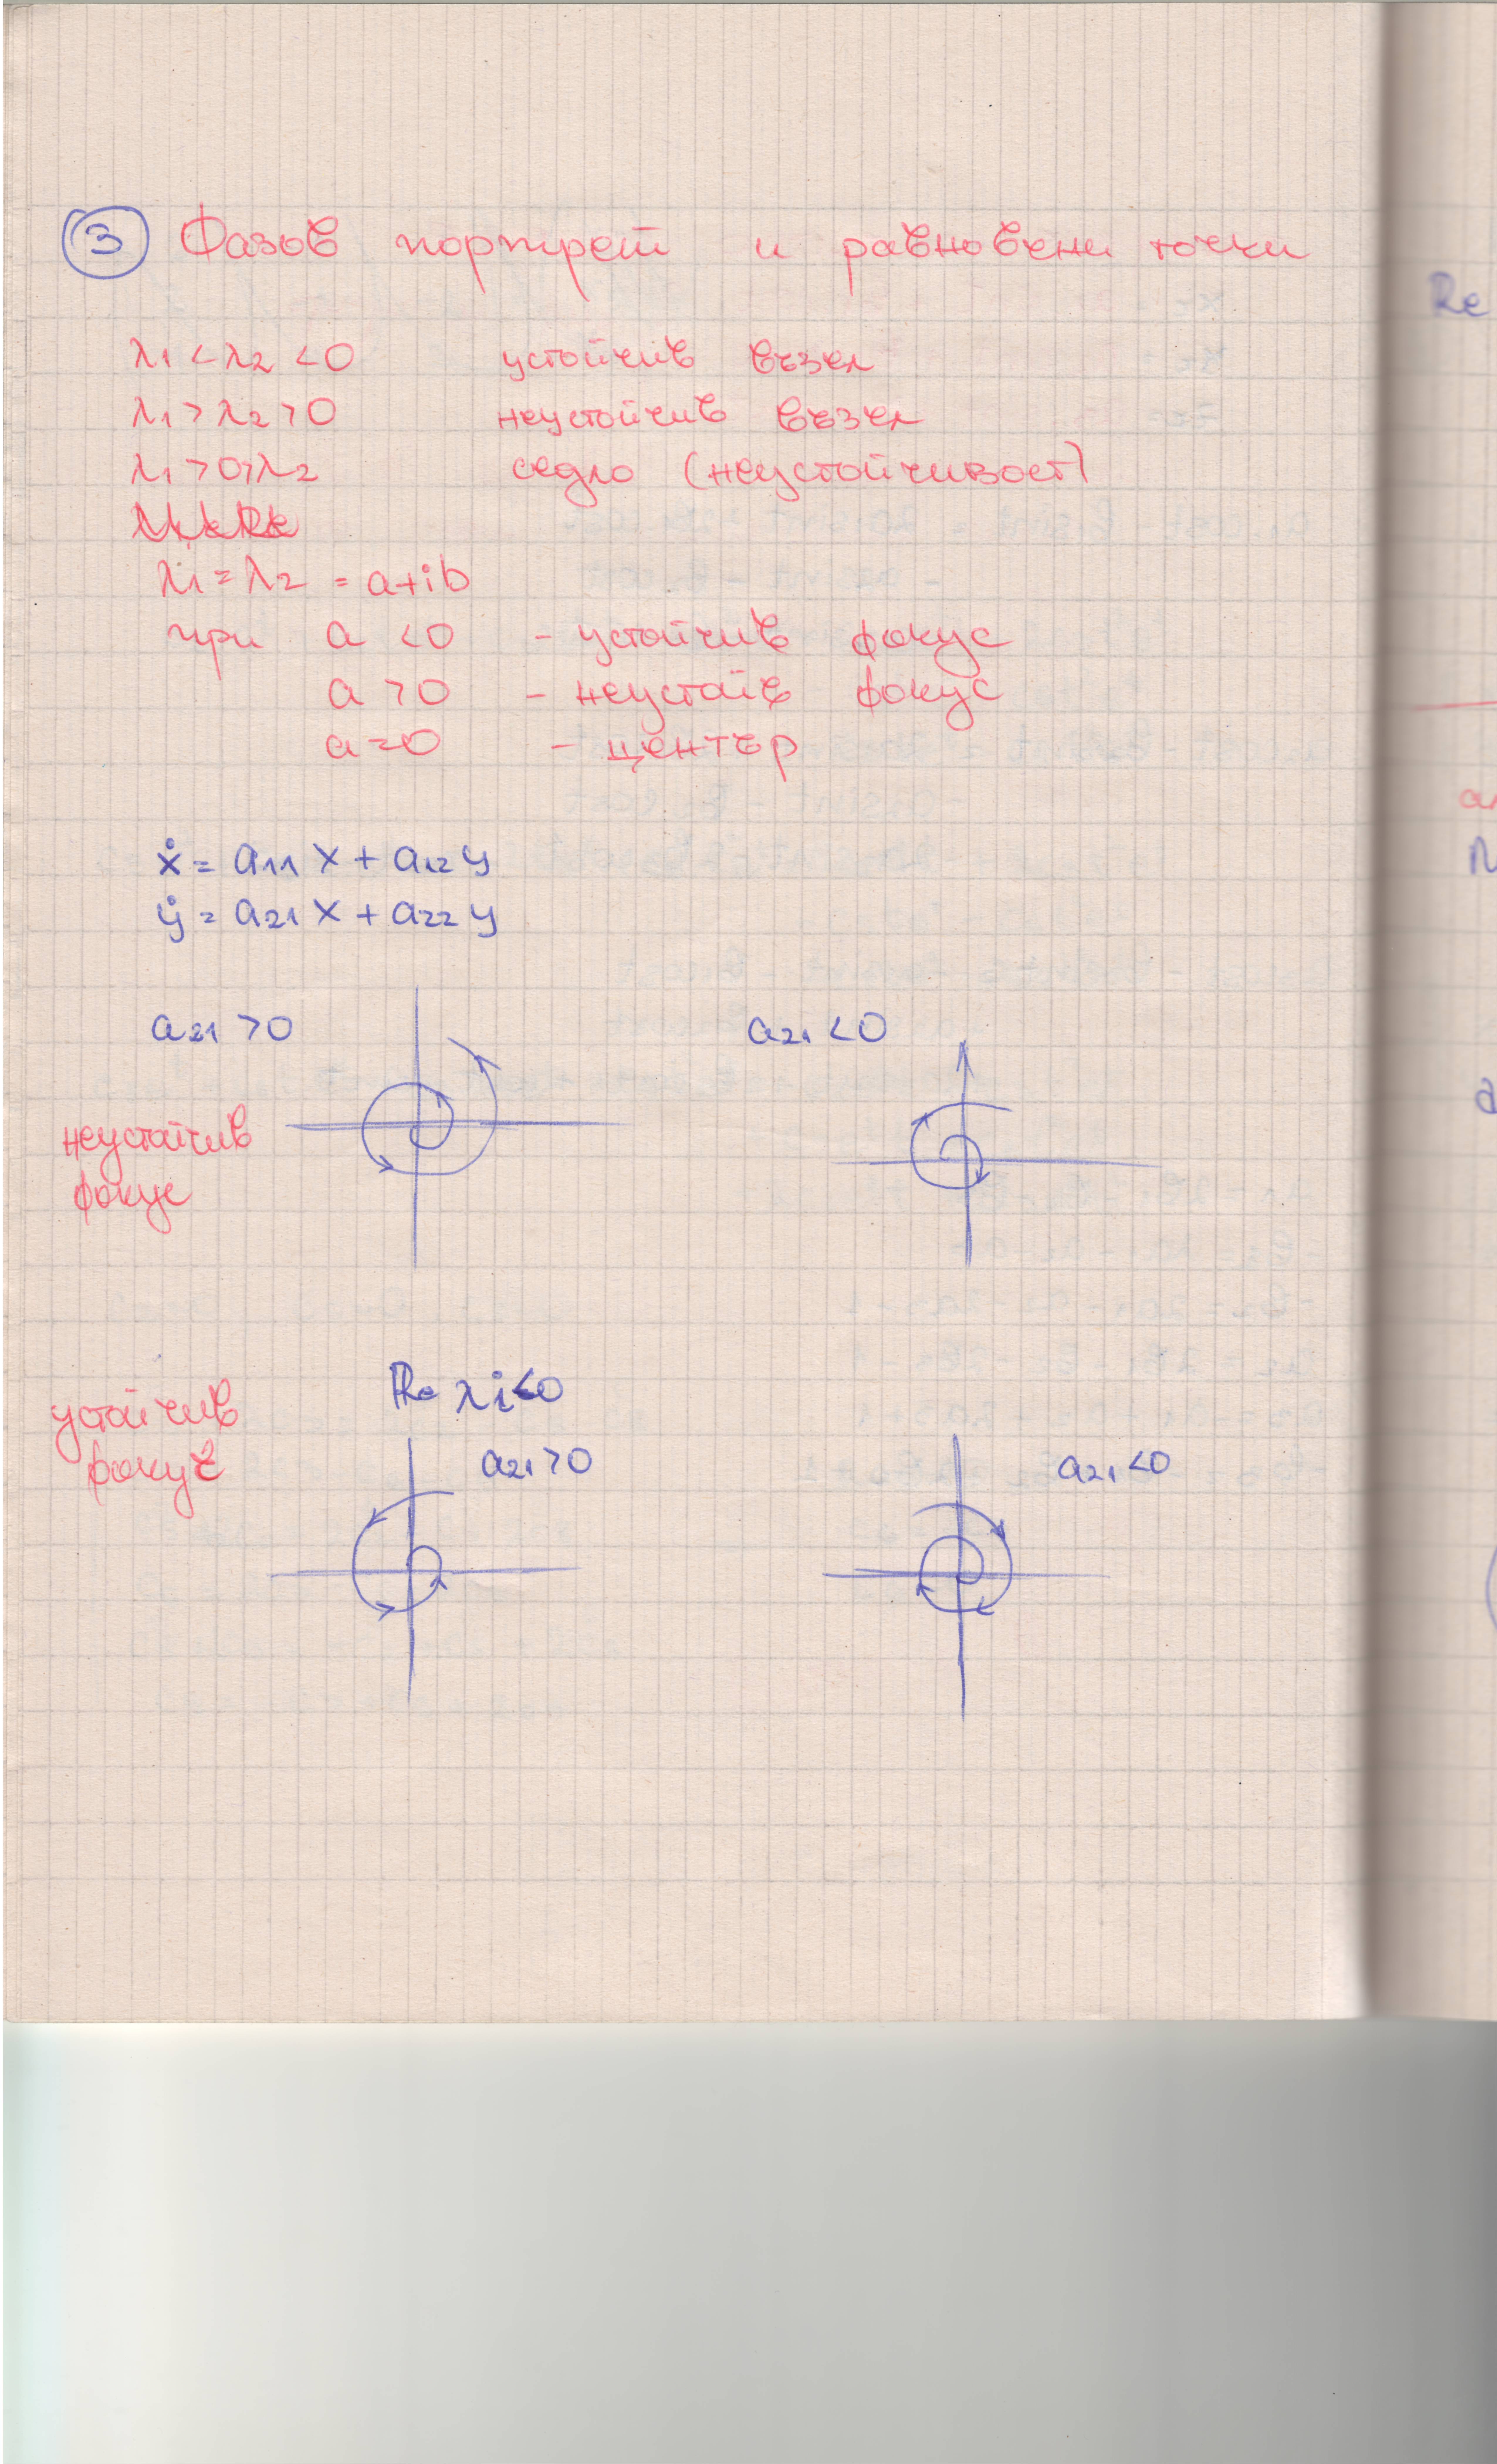 ③ Фазов портрет и равновесни точки
λ1 < λ2 < 0 устойчив възел
λ1 > λ2 > 0 неустойчив възел
λ1 > 0 > λ2 седло (неустойчивост)
λ1 = λ2 = a+ib
при a < 0 - устойчив фокус
a > 0 - неустойв фокус
a = 0 - център
ẋ = a11 x + a12 y
ẏ = a21 x + a22 y
a21 > 0 a21 < 0
неустойчив
фокус
устойчив Re λi < 0
фокус a21 > 0 a21 < 0
Re